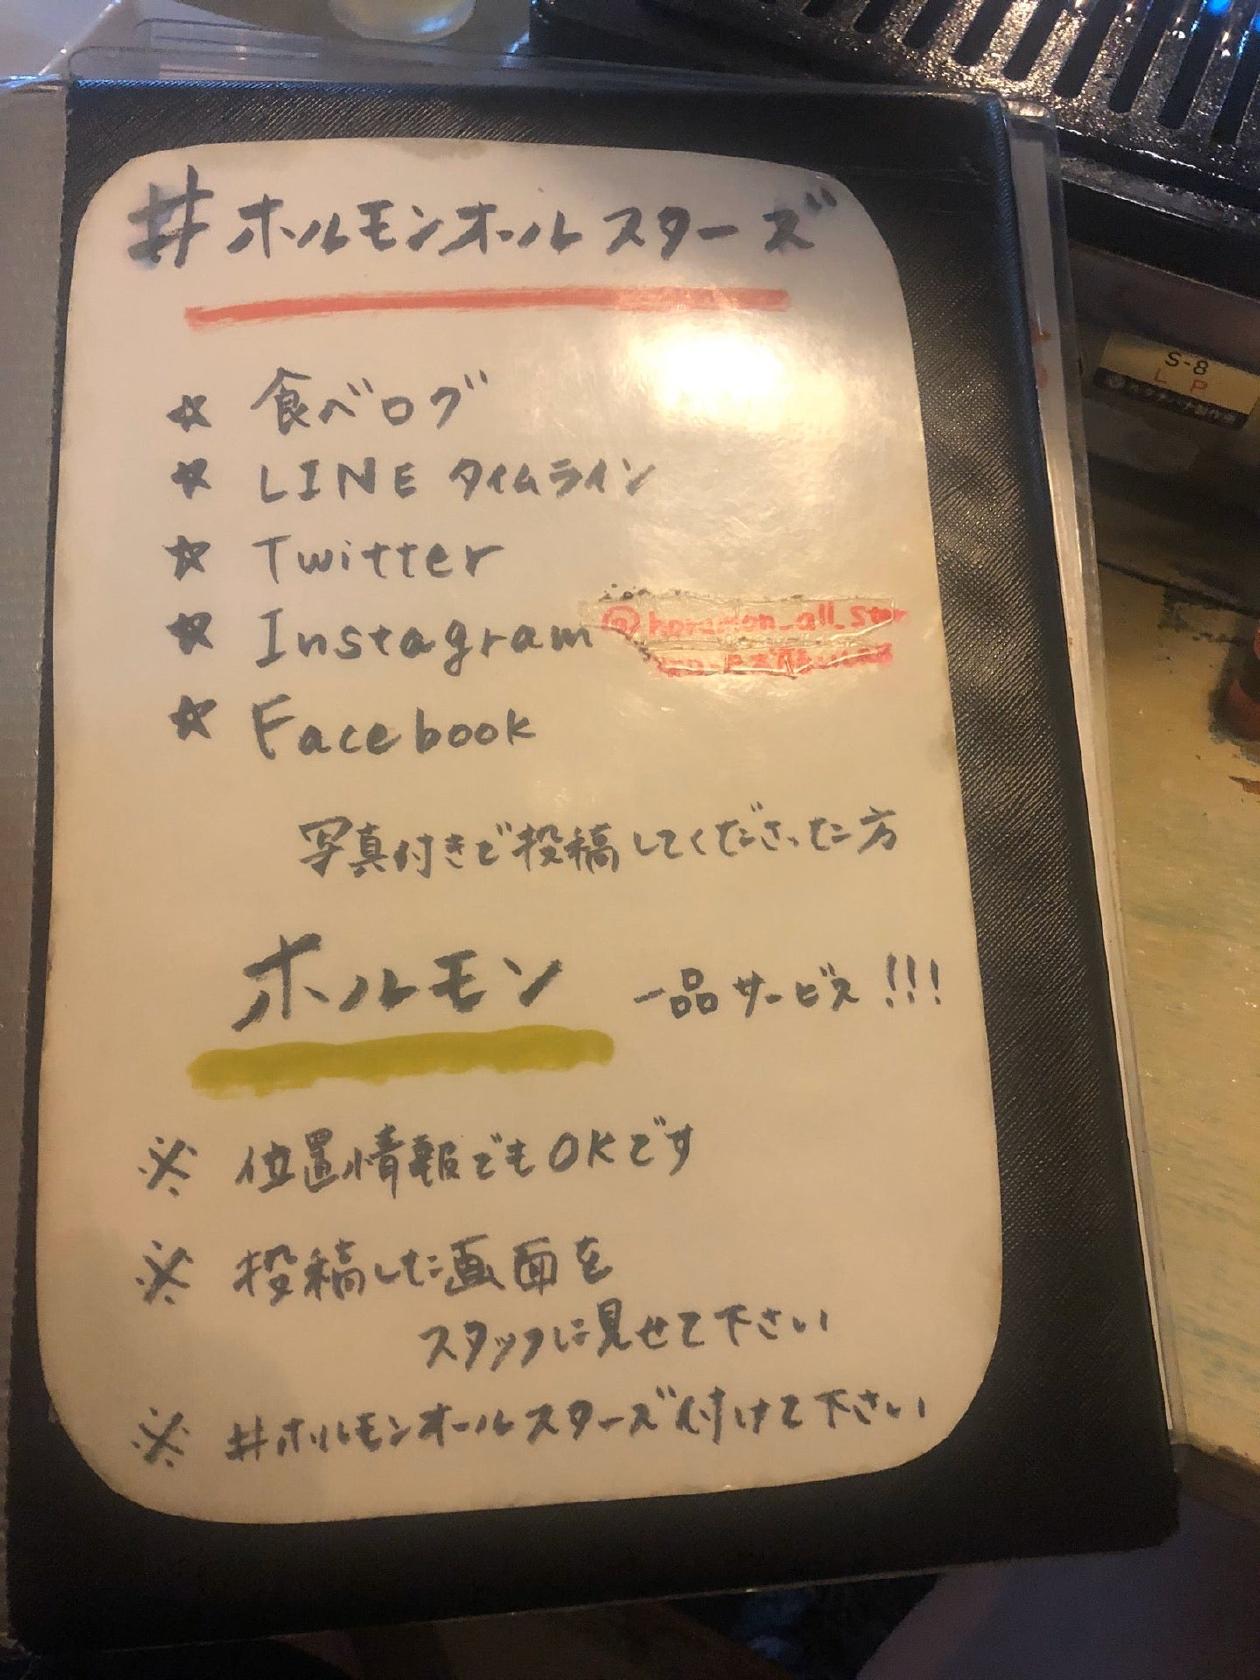 #ホルモンオールスターズ
☆ 食べログ
☆ LINE タイムライン
☆ Twitter
☆ Instagram @horumon_all_star
☆ Facebook
写真付きで投稿してくださった方
ホルモン 一品サービス!!!
※ 位置情報でもOKです
※ 投稿した画面を
スタッフに見せて下さい
※ #ホルモンオールスターズ付けて下さい
S-8
L P